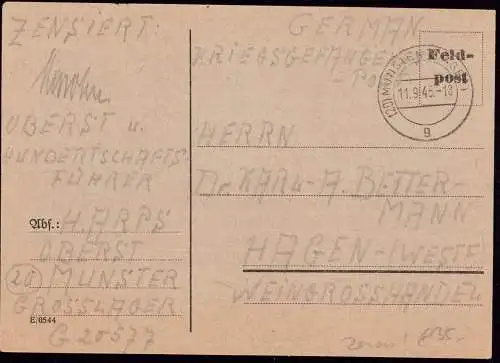 ZENSIERT:
OBERST u.
HUNDERTSCHAFTS-
FÜHRER
Abs.: H. ARPS
OBERST
(20) MUNSTER
GROSSLAGER
G 20577
E/0544
GERMAN
KRIEGSGEFANGEN
-PO
Feld-
post
(20) MUNSTER
11.9.45.-18
g
HERRN
Dr. KARL-A. BETTER-
MANN
HAGEN-i WESTF
WEINGROSSHANDEL